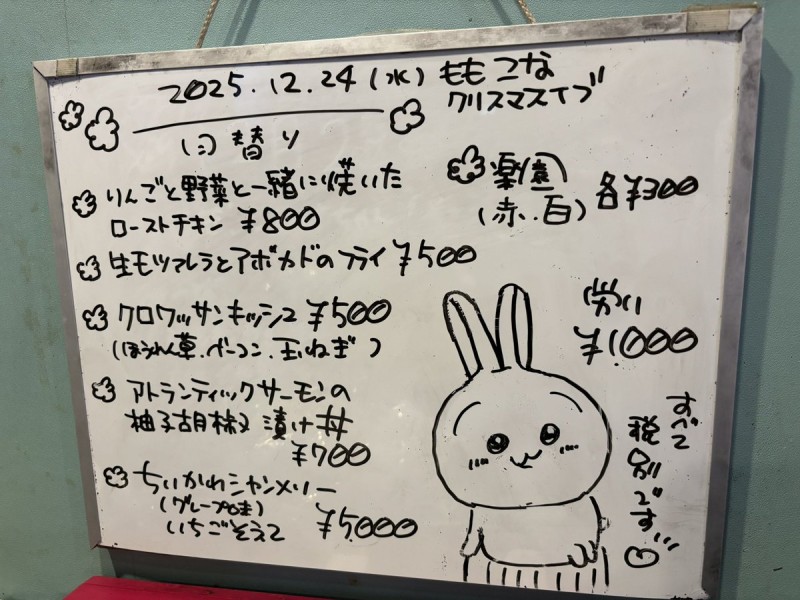 2025.12.24(水) ももこな
クリスマスイブ
日替り
りんごと野菜と一緒に焼いた
ローストチキン ¥800
生モツァレラとアボカドのフライ ¥500
クロワッサンキッシュ ¥500
(ほうれん草.ベーコン.玉ねぎ)
アトランティックサーモンの
柚子胡椒漬け丼
¥700
ちいかわシャンメリー
(グレープ味)
いちごそえて ¥5,000
楽園
(赤.白) 各¥300
労い
¥1,000
すべて
税別です